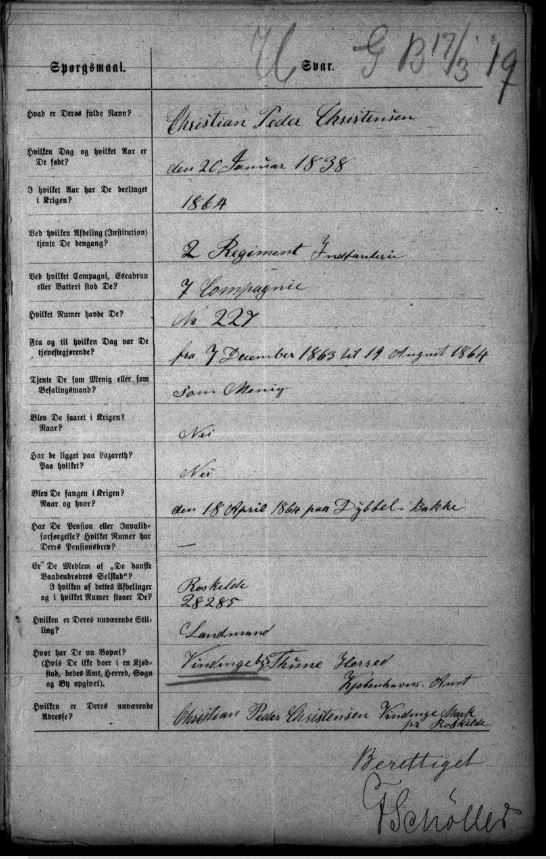 U G B 17/3 19
Spørgsmaal.
Svar.
Hvad er Deres fulde Navn?
Christian Peder Christensen
Hvilken Dag og hvilket Aar er
De født?
den 20 Januar 1838
I hvilket Aar har De deeltaget
i Krigen?
1864
Ved hvilken Afdeling (Institution)
tjente De dengang?
2 Regiment Indfanterie
Ved hvilket Compagni, Escadron
eller Batteri stod De?
7 Compagnie
Hvilket Numer havde De?
No 227
Fra og til hvilken Dag var De
tjenestegjørende?
fra 7 December 1863 til 19 August 1864
Tjente De som Menig eller som
Befalingsmand?
som Menig
Blev De saaret i Krigen?
Naar?
Nei
Har de ligget paa Lazareth?
Paa hvilket?
Nei
Blev De fangen i Krigen?
Naar og hvor?
den 18 April 1864 paa Dybbel Bakke
Har De Pension eller Invalid-
forsørgelse? Hvilket Numer har
Deres Pensionsbrev?
—
Er De Medlem af „De danske
Vaabenbrødres Selskab“?
I hvilken af dettes Afdelinger
og i hvilket Numer staaer De?
Roskilde
28285
Hvilken er Deres nuværende Stil-
ling?
Landmand
Hvor har De nu Bopæl?
(Hvis De ikke boer i en Kjøb-
stad, bedes Amt, Herred, Sogn
og By opgivet).
Vindinge by Thune Herred
Kjøbenhavns Amt
Hvilken er Deres nuværende
Adresse?
Christian Peder Christensen Vindinge Mark
pr Roskilde
Berettiget
FSchøller